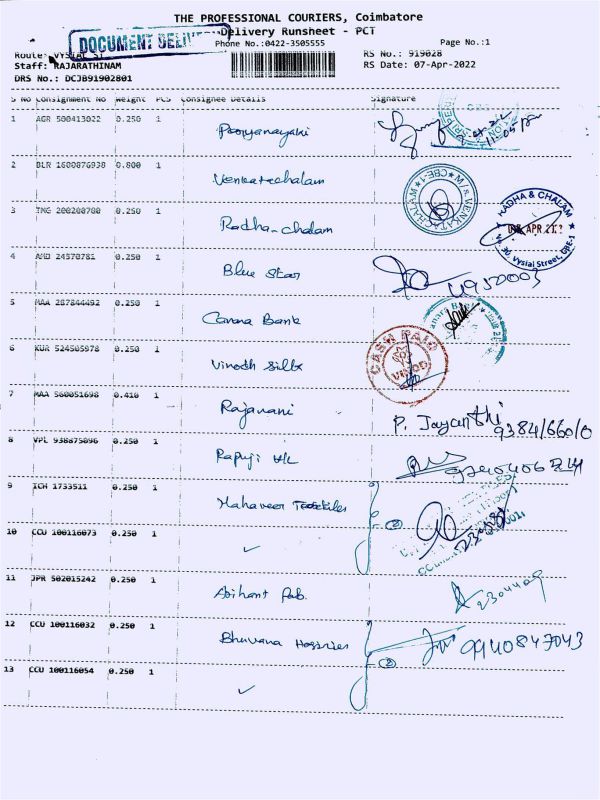 THE PROFESSIONAL COURIERS, Coimbatore
DOCUMENT Delivery Runsheet - PCT
Phone No.:0422-3505555 Page No.:1
Route: VYSIAL ST RS No.: 919028
Staff: RAJARATHINAM RS Date: 07-Apr-2022
DRS No.: DCJB91902801
S No Consignment No Weight PCS Consignee Details Signature
1 AGR 500413022 0.250 1
2 BLR 1600876938 0.800 1 Venkatachalam
3 TNG 200208700 0.250 1 Radha-chalam
RADHA & CHALAM
Vysial Street, CBE-1
4 AMD 24570781 0.250 1 Blue Star
5 MAA 287844492 0.250 1 Canara Bank
6 KUR 524505978 0.250 1 Vinodh Silks
CASH PAID
7 MAA 560051698 0.410 1 Rajavani P. Jayanthi
9384166010
8 VPL 938875096 0.250 1
9 ICH 1733511 0.250 1 Mahaveer Textiles
10 CCU 100116073 0.250 1 ✓
11 JPR 502015242 0.250 1 Arihant Fab.
12 CCU 100116032 0.250 1 Bhuvana Hosieries 9940847043
13 CCU 100116054 0.250 1 ✓